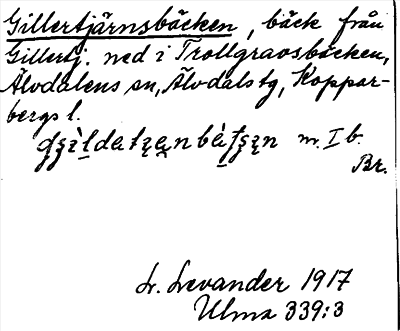 Gillertjärnsbäcken, bäck från
Gillertj. ned i Trollgravsbäcken,
Älvdalens sn, Älvdals tg, Koppar-
bergs l.
m. I b.
Br.
L. Levander 1917
Ulma 339:3